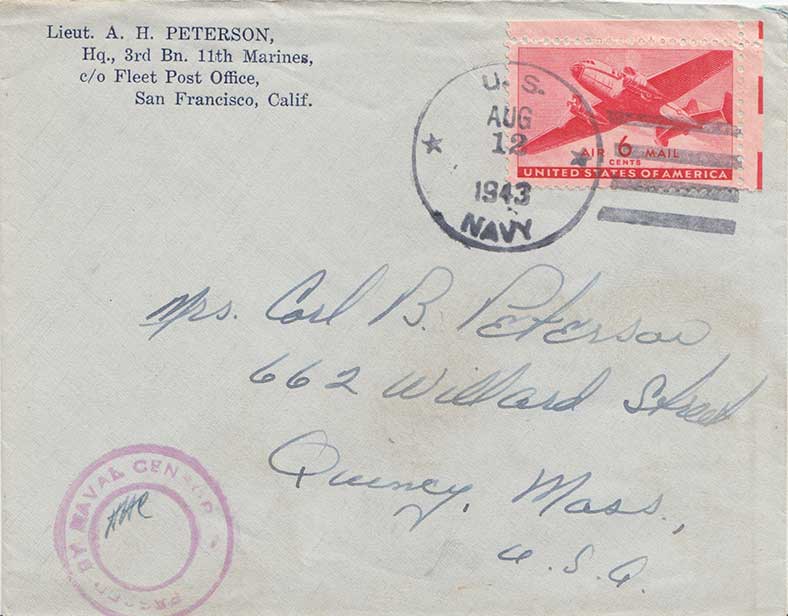 Lieut. A. H. PETERSON,
Hq., 3rd Bn. 11th Marines,
c/o Fleet Post Office,
San Francisco, Calif.
U. S.
AUG
12
1943
NAVY
AIR 6 MAIL
CENTS
UNITED STATES OF AMERICA
Mrs. Carl B. Peterson
662 Willard Street
Quincy, Mass.,
U.S.A.
PASSED BY NAVAL CENSOR